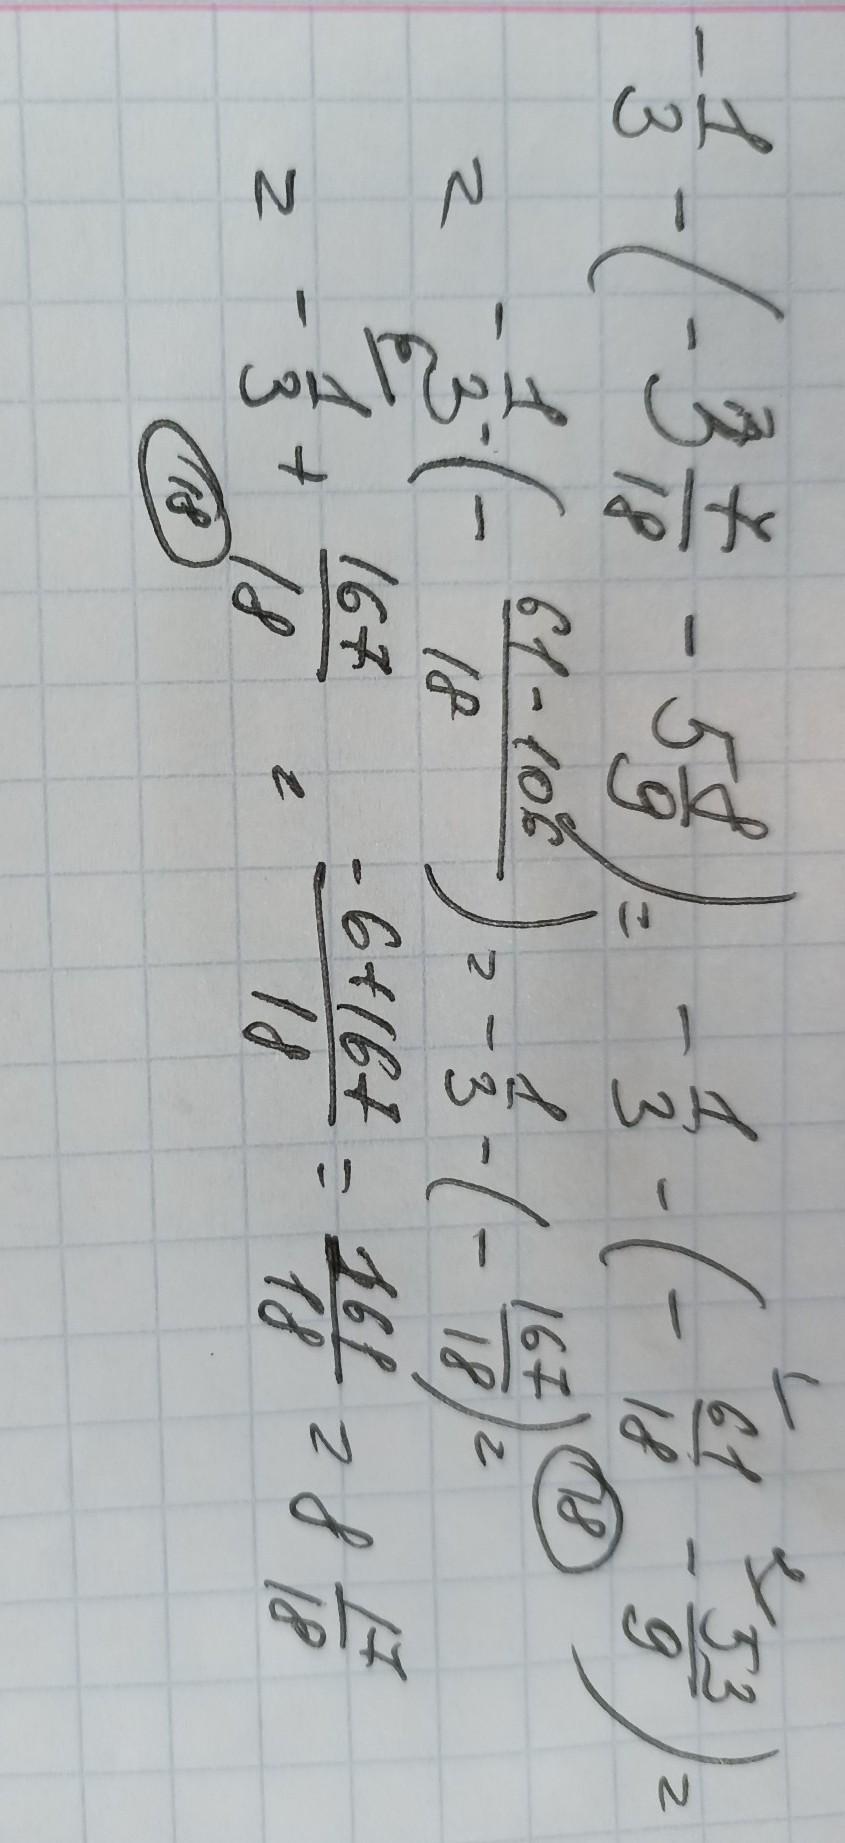 -1/3 - (-3 7/18 - 5 8/9) = -1/3 - (-61/18 - 53/9) =
= -1/3 - (-61-106/18) = -1/3 - (-167/18) =
= -1/3 + 167/18 = -6+167/18 = 161/18 = 8 17/18